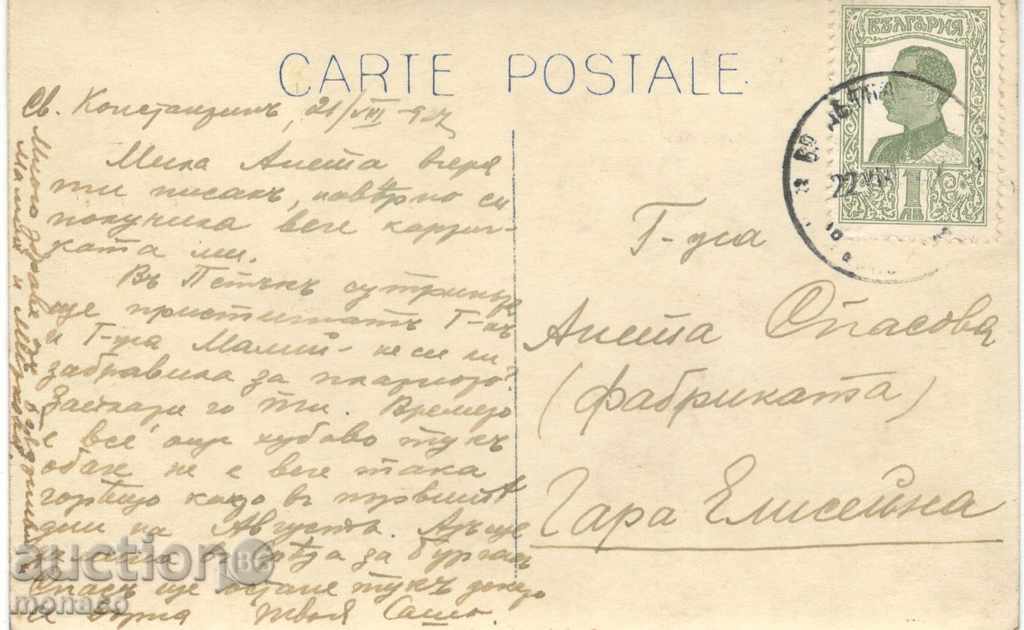 CARTE POSTALE
БЪЛГАРИЯ
1 ЛВ
22
Св. Константинъ, 21/VIII
Мила Анета вчера
ти писахъ, навѣрно си
получила вече картич-
ката ми.
Въ Петъкъ сутриньта
ще пристигнатъ Г-нъ
и Г-жа не си ли
забравила за
го ти. Времето
е все още хубаво тукъ
обаче не е вече така
горещо както въ първитѣ
дни на Августа.
за Бургасъ
Спасъ ще остане тукъ докато
се върна Твоя Сашо
Много здраве отъ
и
Г-ца
Анета Спасова
(фабриката)
Гара Елисейна
auction BG
monaco